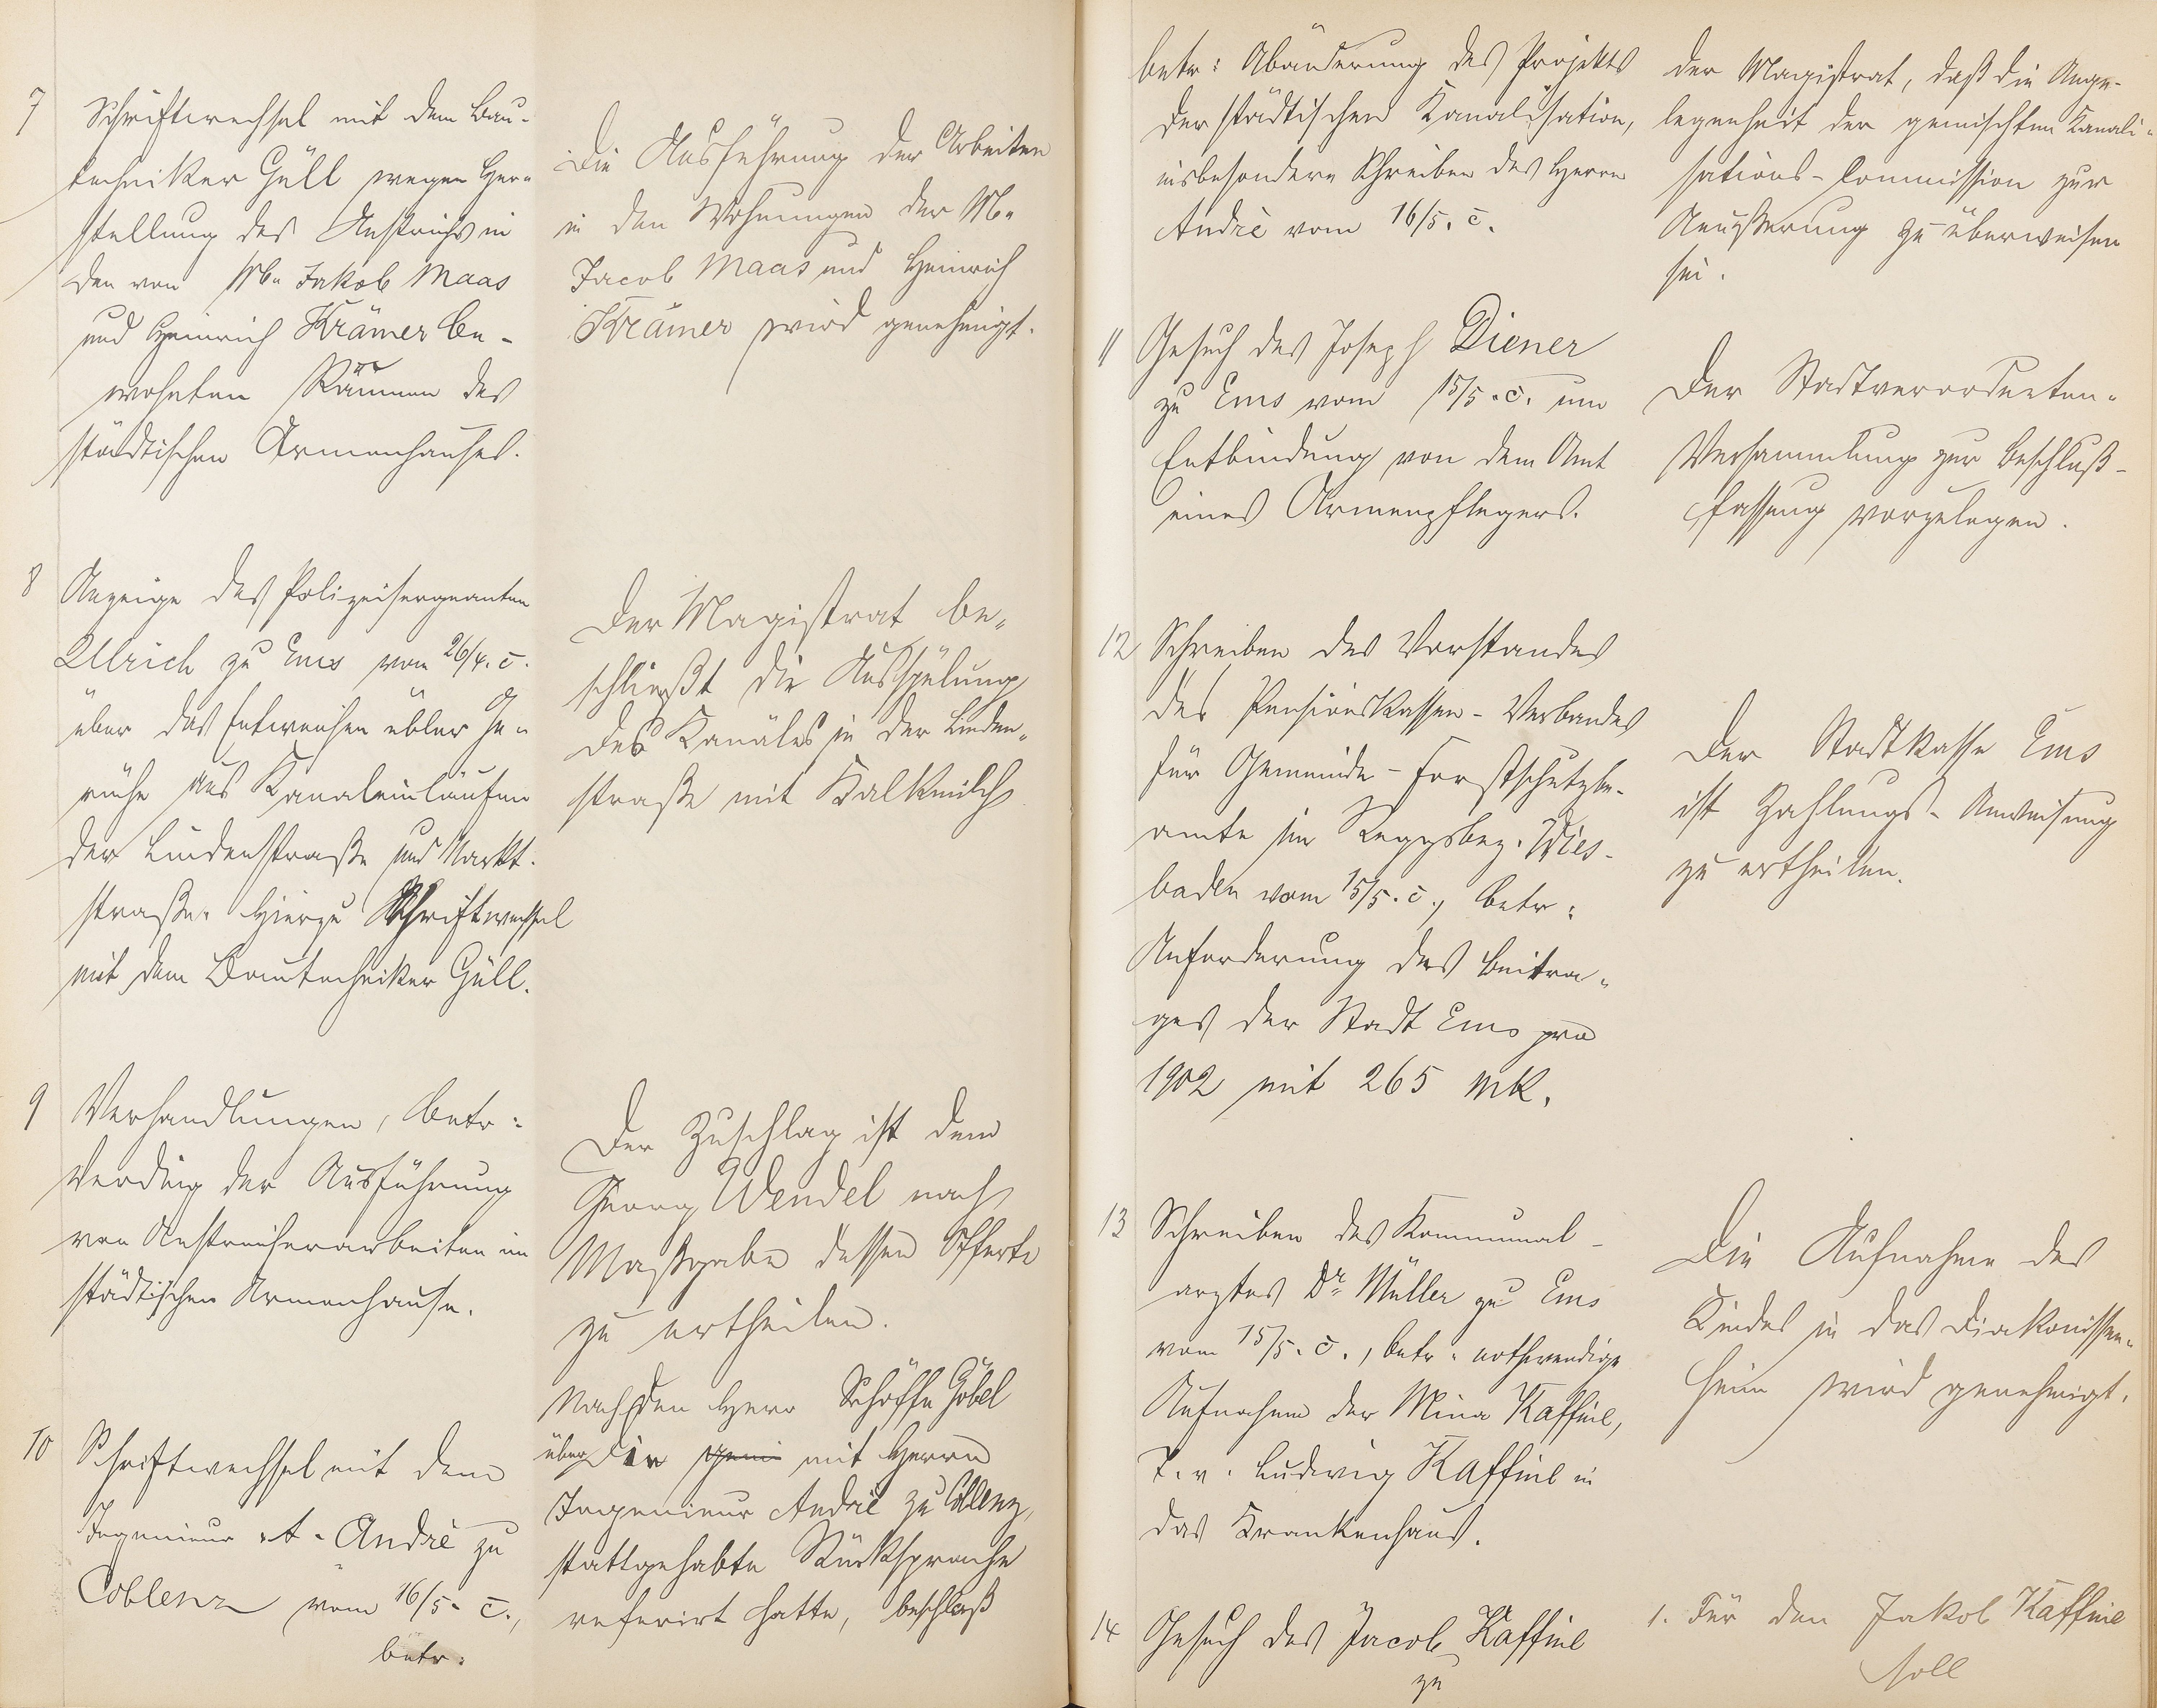 7
Schriftwechsel mit dem Bau-
techniker Güll wegen Her-
stellung des Anstrichs in
den von Ww. Jakob Maas
und Heinrich Krämer be-
wohnten Räumen des
städtischen Armenhauses.
Die Ausführung der Arbeiten
in den Wohnungen der Ww.
Jacob Maas und Heinrich
Krämer wird genehmigt.
8
Anzeige des Polizeisergeanten
Ullrich zu Ems vom 26/4. c.
über das Entweichen übler Ge-
rüche aus Kanaleinläufen
der Lindenstraße und Markt-
straße. Hierzu Schriftwechsel
mit dem Bautechniker Güll.
Der Magistrat be-
schließt die Ausspülung
des Kanales in der Linden-
straße mit Kalkmilch
9
Verhandlungen, betr:
Verding der Ausführung
von Anstreicherarbeiten im
städtischen Armenhause.
Der Zuschlag ist dem
Georg Wendel nach
Maßgabe dessen Offerte
zu ertheilen.
10
Schriftwechsel mit dem
Ingenieur A. André zu
Coblenz vom 16/5. c.,
betr:
Nachdem Herr Schöffe Göbel
über die mit Herrn
Ingenieur André zu Coblenz,
stattgehabte Rücksprache
referirt hatte, beschloß
betr: Abänderung des Projekts
der städtischen Kanalisation,
insbesondere Schreiben des Herrn
André vom 16/5. c.
der Magistrat, daß die Ange-
legenheit der gemischten Kanali-
sations-Commission zur
Aeußerung zu überweisen
sei.
11
Gesuch des Joseph Diener
zu Ems vom 15/5. c. um
Entbindung von dem Amt
eines Armenpflegers.
Der Stadtverordneten-
Versammlung zur Beschluß-
fassung vorzulegen.
12
Schreiben des Vorstandes
des Pensionskassen-Verbandes
für Gemeinde-Forstschutzbe-
amte im Reggsbez. Wies-
baden vom 15/5. c., betr:
Anforderung des Beitra-
ges der Stadt Ems pro
1902 mit 265 Mk.
Der Stadtkasse Ems
ist Zahlungs-Anweisung
zu ertheilen.
13
Schreiben des Kommunal-
arztes Dr. Müller zu Ems
vom 15/5. c., betr. nothwendige
Aufnahme der Mina Kaffine,
T. v. Ludwig Kaffine in
das Krankenhaus.
Die Aufnahme des
Kindes in das Diakonissen-
heim wird genehmigt.
14
Gesuch des Jacob Kaffine
zu
1. Für den Jakob Kaffine
soll